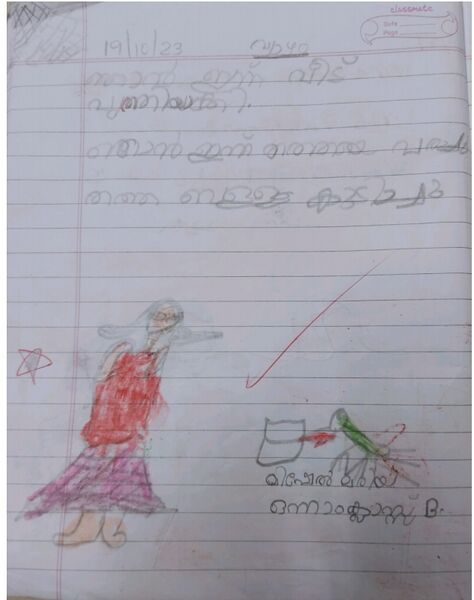 classmate
Date
Page
19/10/23
വ്യാഴം
ഞാൻ ഇന്ന് വീട്
വൃത്തിയാക്കി.
ഞാൻ ഇന്ന് തത്തയെ
തത്ത വെള്ളം കുടിച്ചു
മിഷേൽ മരിയ
ഒന്നാംക്ലാസ്സ് B.